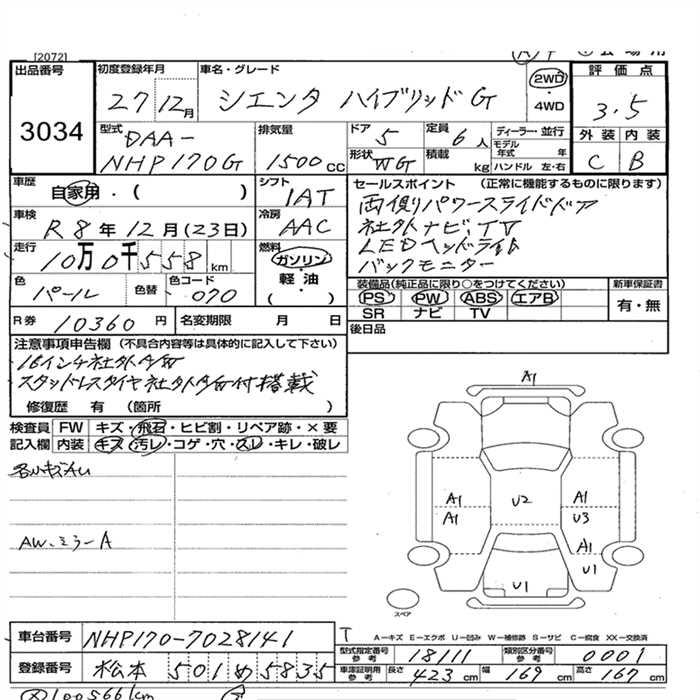 [2072]
出品番号
3034
初度登録年月
27 12月
車名・グレード
シエンタ ハイブリッドG
2WD
・
4WD
評価点
3.5
外装 内装
C B
型式
DAA-
NHP170G
排気量
1500 CC
ドア 5
定員 6 人
形状 WG
積載 kg
ディーラー・並行
モデル
年式 年
ハンドル 左・右
車歴
自家用・( )
シフト
IAT
車検
R8年12月(23日)
冷房
AAC
走行
10万0千558 km
燃料
ガソリン
・
軽油
( )
色
パール
色替
色コード
070
セールスポイント (正常に機能するものに限ります)
両側パワースライドドア
社外ナビ、TV
LEDヘッドライト
バックモニター
装備品(純正品に限り○をつけてください)
PS PW ABS エアB
SR ナビ TV
新車保証書
有・無
R券 10360 円
名変期限 月 日
後日品
注意事項申告欄 (不具合内容等は具体的に記入して下さい)
16インチ社外AW
スタッドレスタイヤ社外AW付搭載
修復歴 有 (箇所 )
検査員 FW キズ・飛石・ヒビ割・リペア跡・×要
記入欄 内装 キズ・汚レ・コゲ・穴・スレ・キレ・破レ
各小キズAU
AW、ミラーA
A1
A1 A1
A1 U2 U3
A1
U1 U1
スペア
車台番号 NHP170-7028141
登録番号 松本 501 め 5835
A—キズ E—エクボ U—凹み W—補修跡 S—サビ C—腐食 XX—交換済
型式指定番号
参考
18111
類別区分番号
参考
0001
車庫証明用
参考
長さ 423 cm 幅 169 cm 高さ 167 cm
100566km